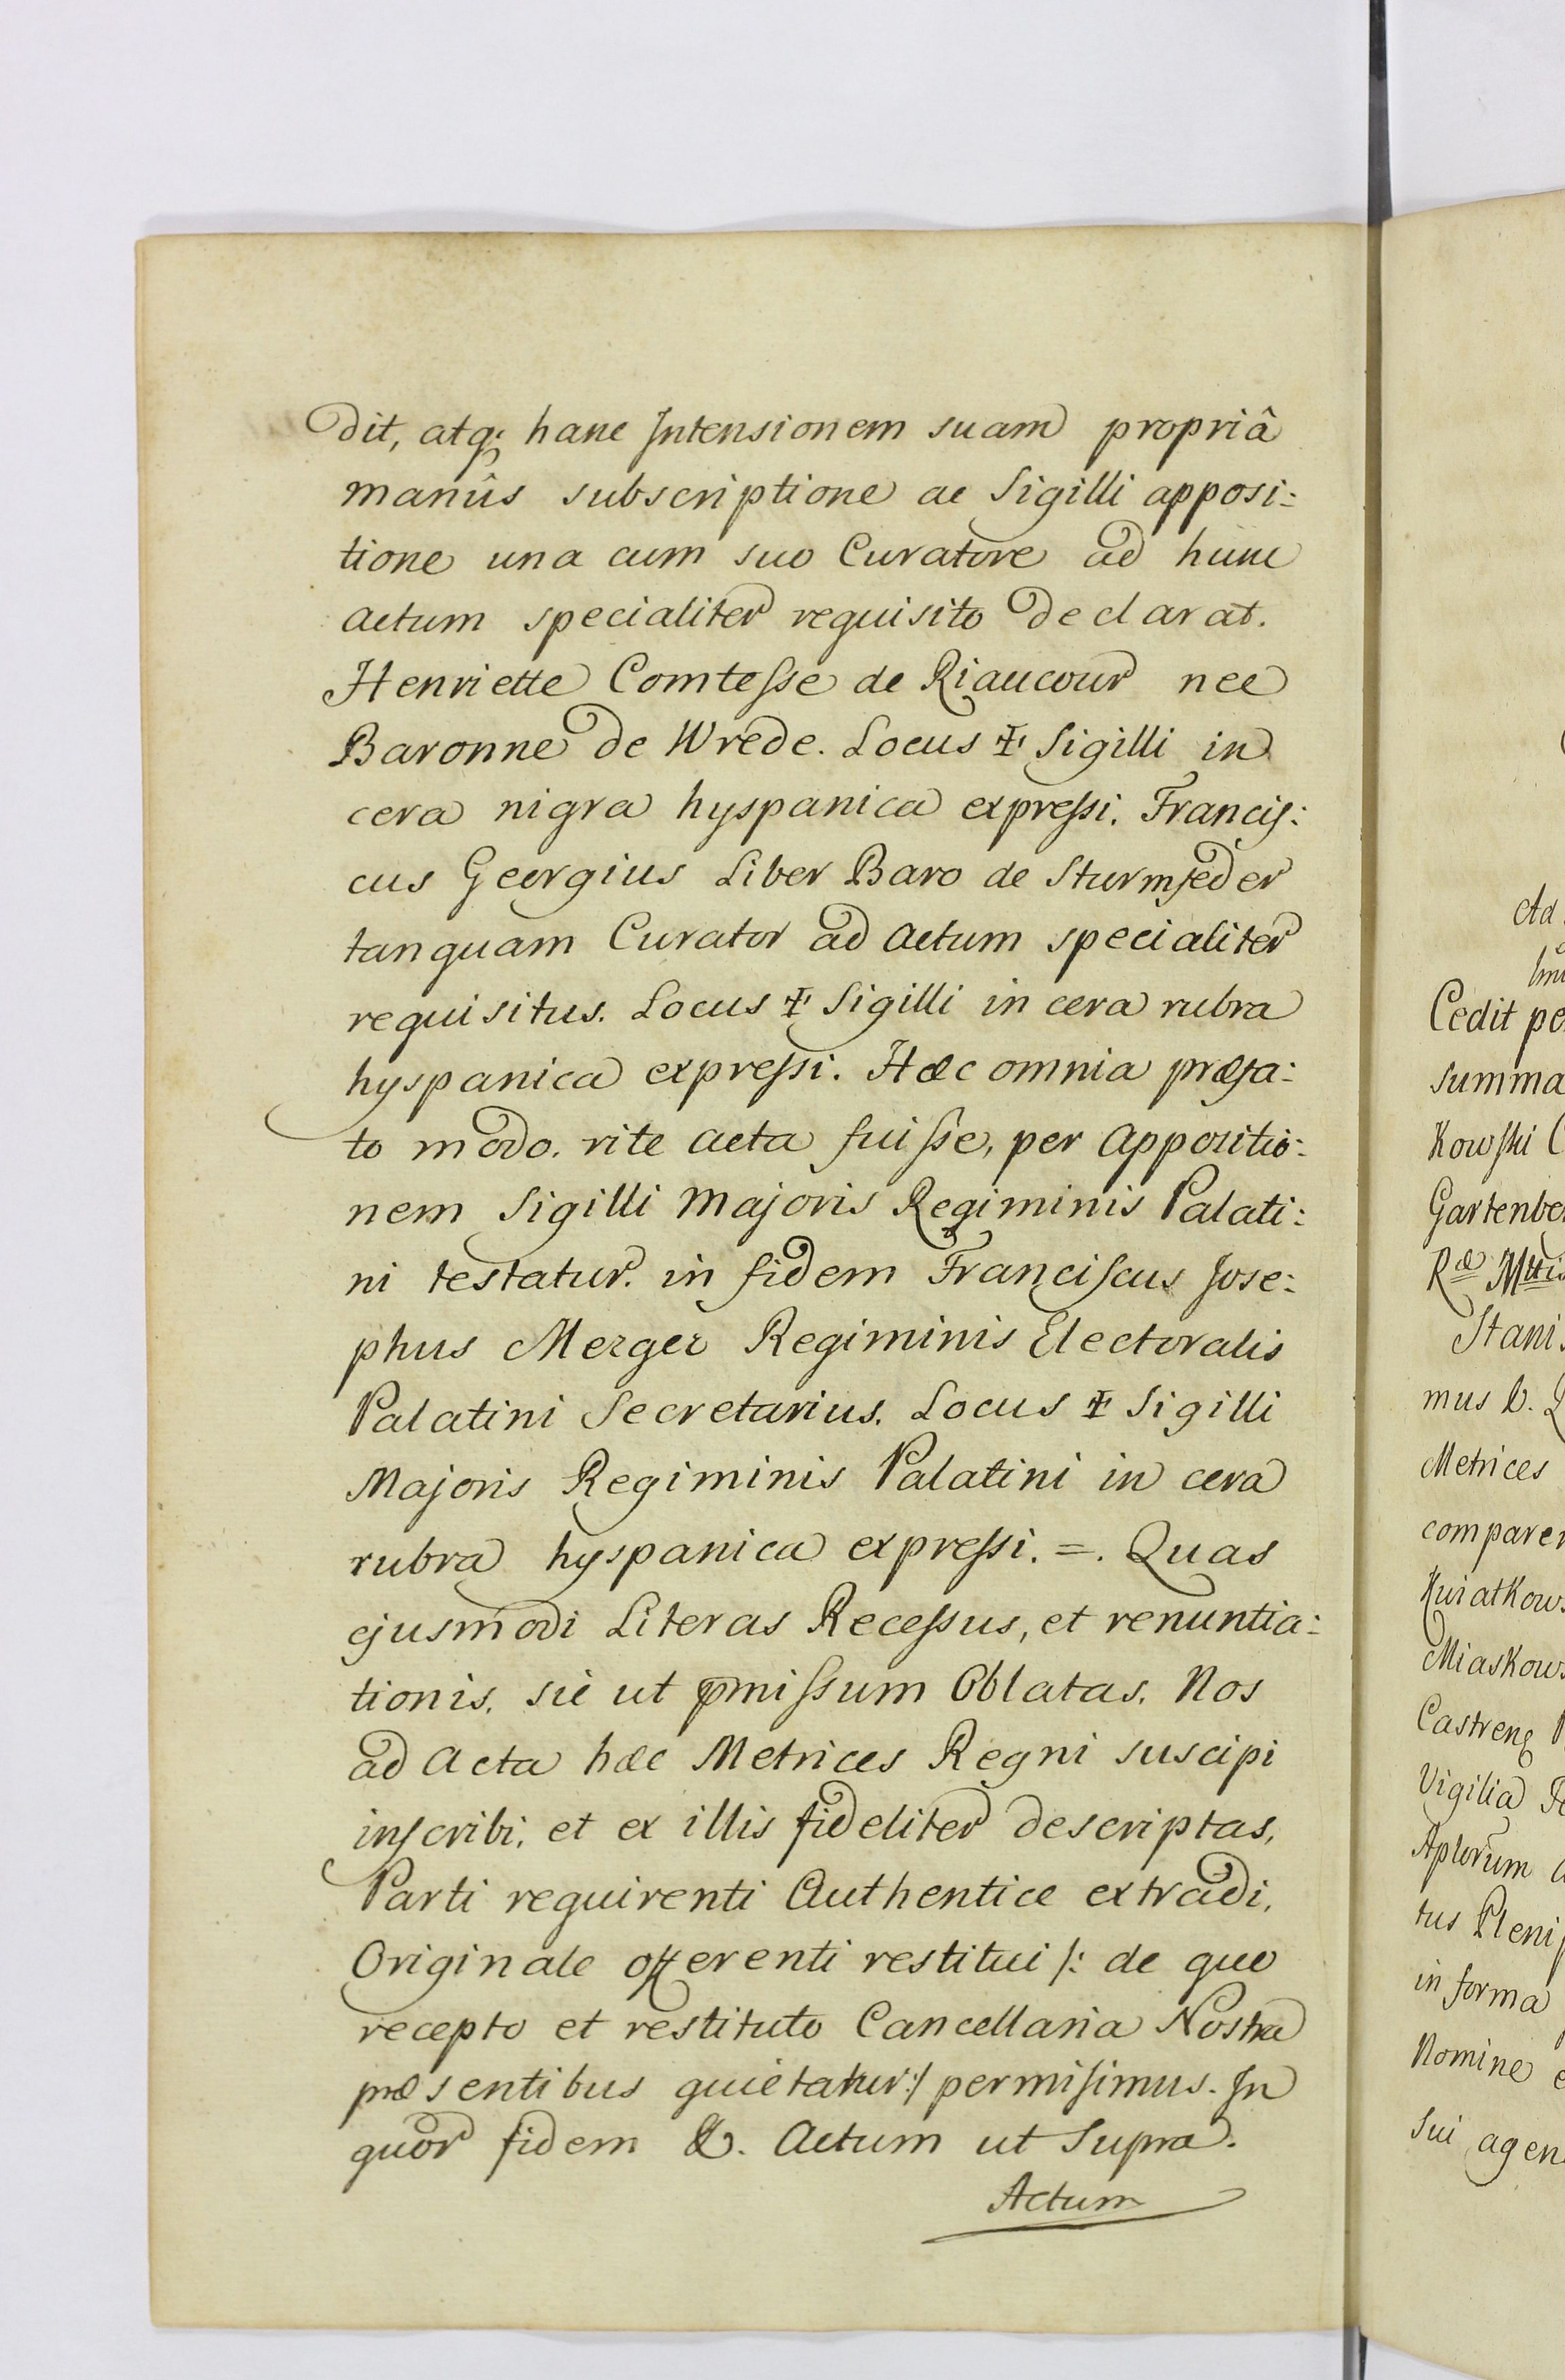 dit, atq; hanc Intensionem suam propriâ
manûs subscriptione ac Sigilli apposi:
tione una cum suo Curatore ad hunc
actum specialiter requisito declarat.
Henriette Comteſse de Riaucour nee
Baronne de Wrede. Locus ✠ Sigilli in
cera nigra hyspanica expreſsi. Franciſ:
cus Georgius Liber Baro de Sturmfeder
tanquam Curator ad actum specialiter
requisitus. Locus ✠ Sigilli in cera rubra
hyspanica expreſsi. Hæc omnia præfa:
to modo. rite acta fuiſse, per appositio:
nem Sigilli Majoris Regiminis Palati:
ni testatur. in fidem Franciſcus Jose:
phus Merger Regiminis Electoralis
Palatini Secretarius. Locus ✠ Sigilli
Majoris Regiminis Palatini in cera
rubra hyspanica expreſsi. =. Quas
ejusmodi Literas Receſsus, et renuntia:
tionis. sic ut pmiſsum Oblatas. Nos
ad Acta hæc Metrices Regni suscipi
inſcribi. et ex illis fideliter descriptas,
Parti requirenti Authentice extradi.
Originale offerenti restitui /: de quo
recepto et restituto Cancellaria Nostra
præsentibus quietatur :/ permiſimus. In
quor fidem &. Actum ut Supra.
Actum
Ad
Cedit pe
summa
Kowſki C
Gartenbe
Ræ Mttis
Stanis
mus &.
Metrices
comparen
Kwiatkows
Miaskows
Castreng
Vigilia
Aplorum
tus Plenip
in forma
Nomine e
Sui agen